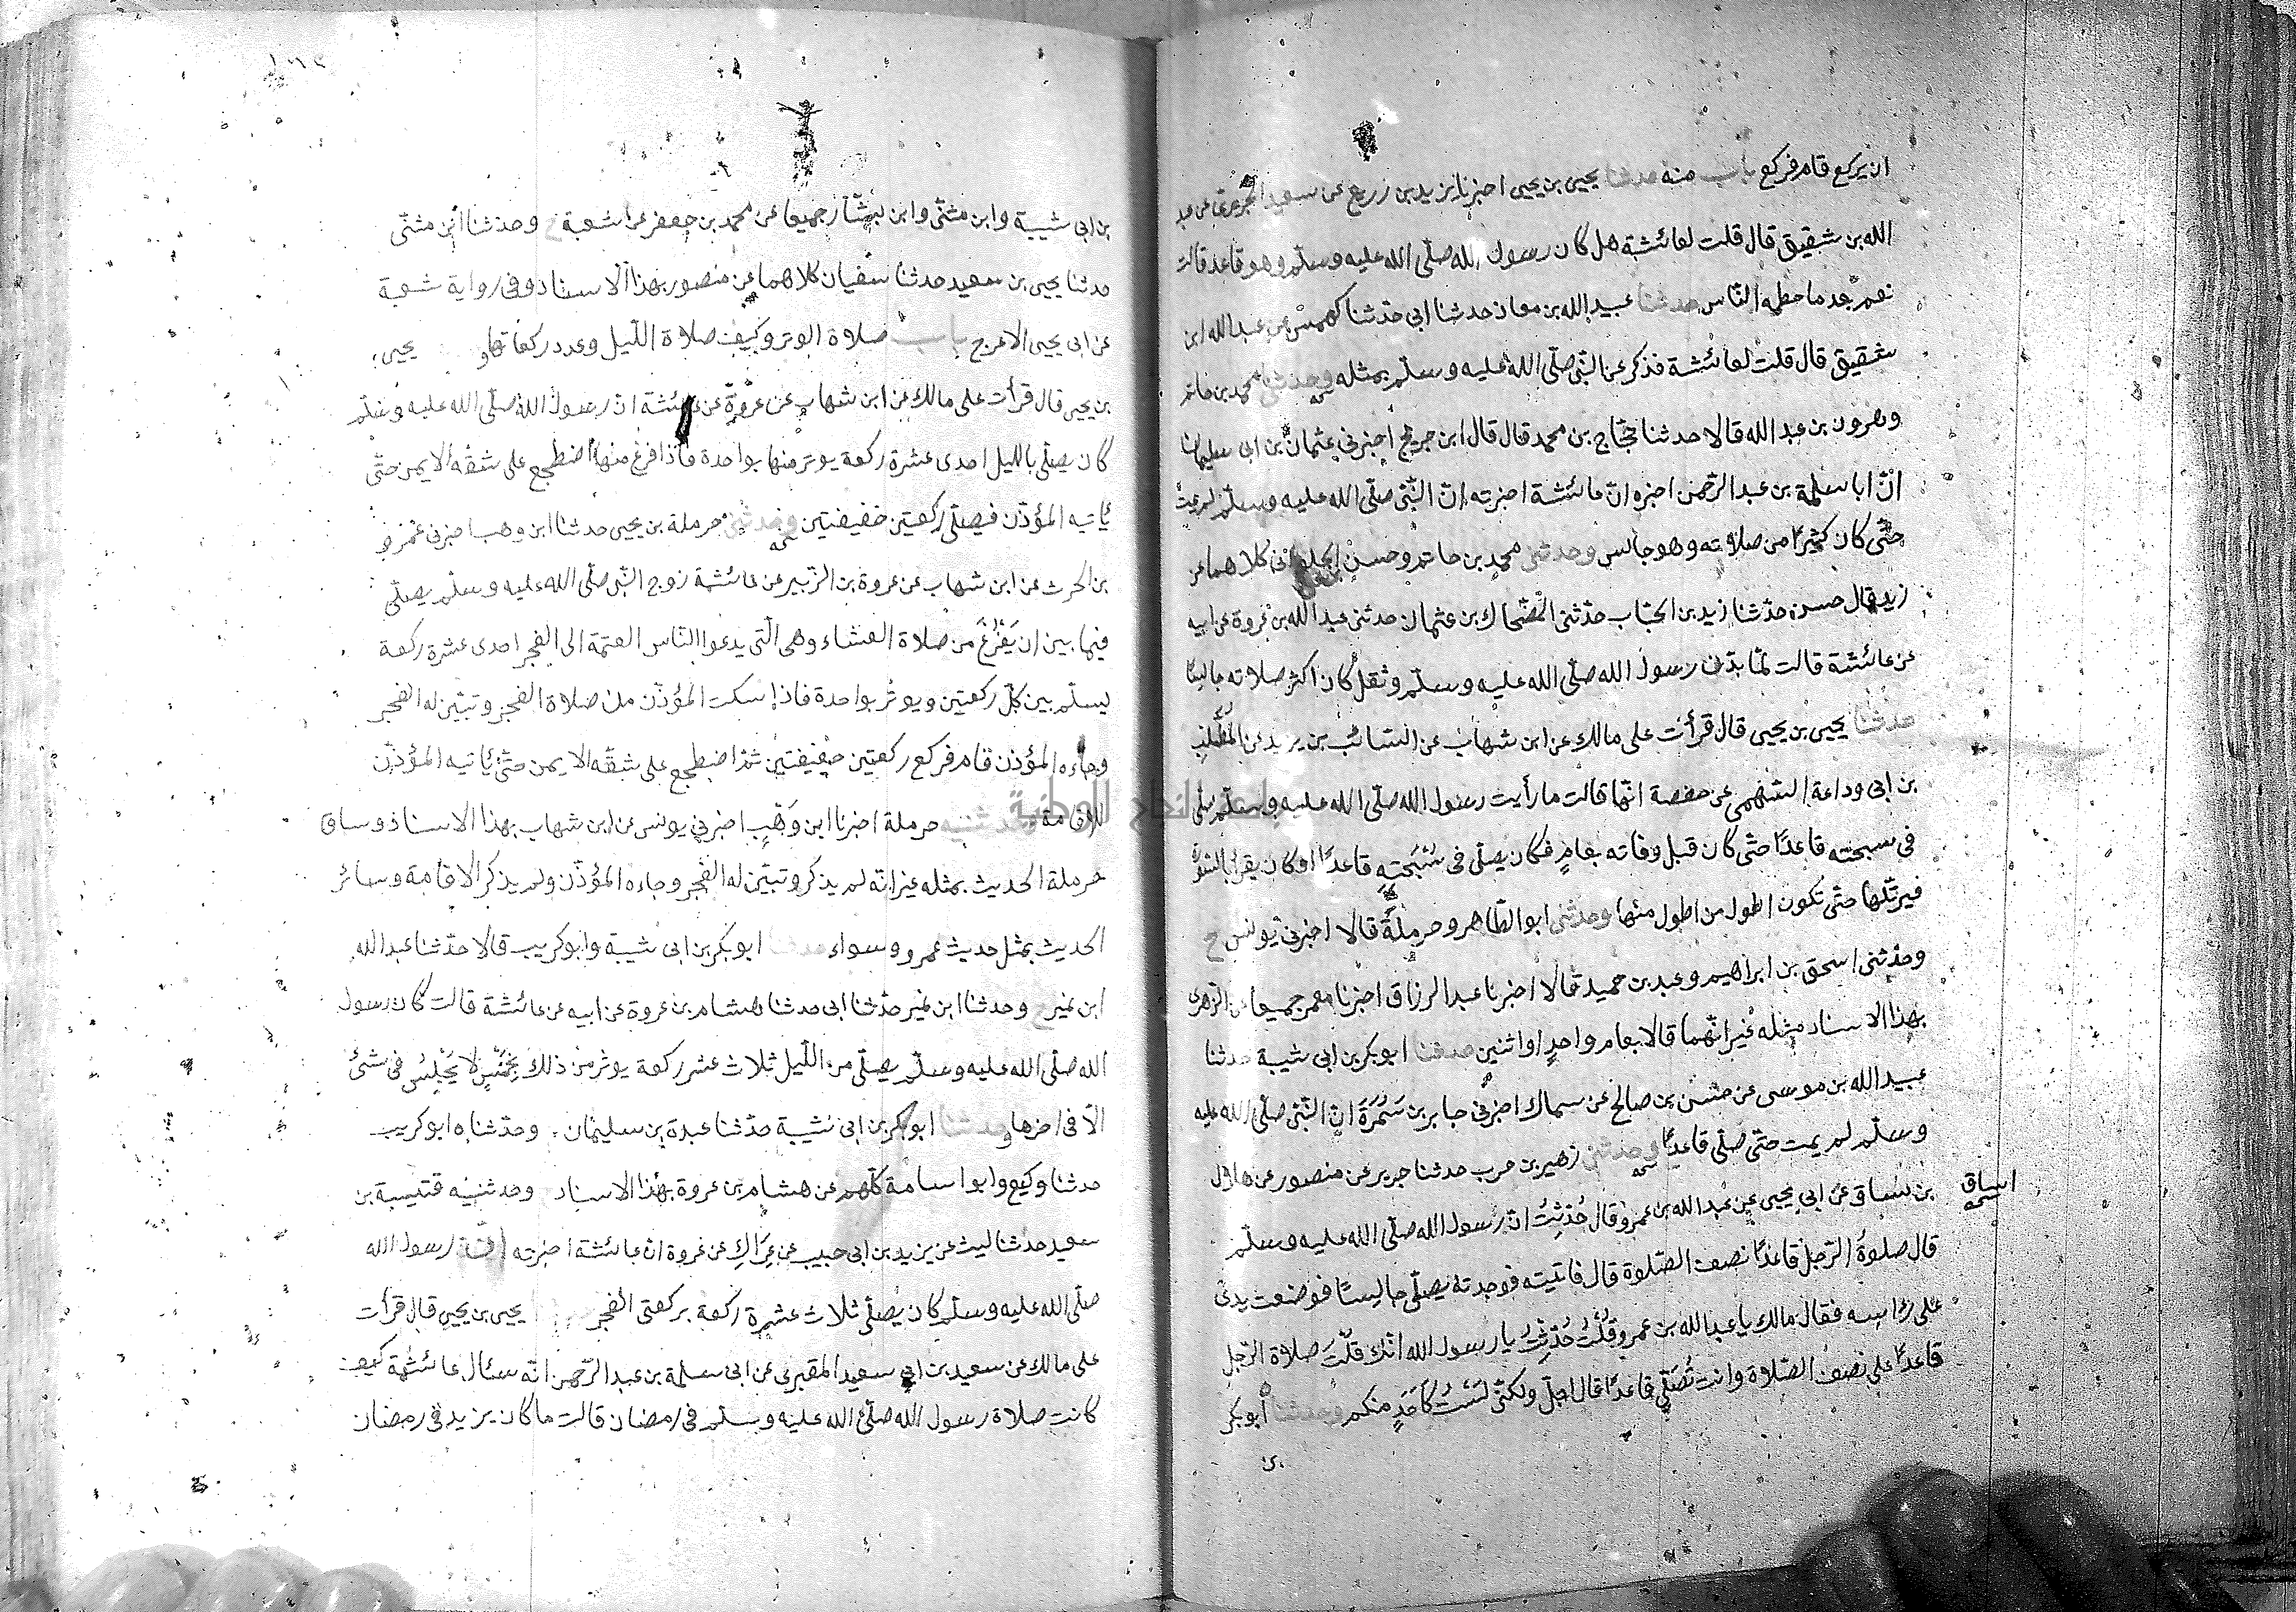 ان يركع قام فركع باب منه حدثنا يحيى بن يحيى اخبرنا يزيد بن زريع عن سعيد الجريري عن عبد
الله بن شقيق قال قلت لعائشة هل كان رسول الله صلّى الله عليه وسلّم وهو قاعد قالت
نعم بعد ما حطمه النّاس حدثنا عبيد الله بن معاذ حدثنا ابى حدّثنا كهمس عن عبد الله ابن
شقيق قال قلت لعائشة فذكر عن النّبى صلّى الله عليه وسلّم بمثله وحدثنى محمد بن حاتم
وهرون بن عبد الله قالا حدثنا حجّاج بن محمد قال قال ابن جريج اخبرنى عثمان بن ابى سليمان
انّ ابا سلمة بن عبد الرّحمن اخبره انّ عائشة اخبرته انّ النّبىّ صلّى الله عليه وسلّم لم يمت
حتّى كان كثيرًا من صلاته وهو جالس وحدثنى محمد بن حاتم وحسن الحلوانى كلاهما عن
زيد قال حسن حدّثنا زيد بن الحبّاب حدّثنى الضّحاك بن عثمان حدثنى عبد الله بن عروة عن ابيه
عن عائشة قالت لمّا بدّن رسول الله صلّى الله عليه وسلّم وثقل كان اكثر صلاته جالسًا
حدثنا يحيى بن يحيى قال قرأت على مالك عن ابن شهاب عن السّائب بن يزيد عن المُطّلب
بن ابى وداعة السّهمى عن حفصة انّها قالت ما رأيت رسول الله صلّى الله عليه وسلّم صلّى
فى سبحته قاعدًا حتّى كان قبل وفاته بعامٍ فكان يصلّى فى سُبْحَتِهِ قاعدًا وكان يقرأ بالسّورة
فيرتّلها حتّى تكون اطول من اطول منها وحدثنى ابو الطّاهر وحرملة قالا اخبرنى يونس ح
وحدّثنى اسحق بن ابراهيم وعبد بن حميد قالا اخبرنا عبد الرزاق اخبرنا معمر جميعا عن الزهرى
بهذا الاسناد مثله غير انّهما قالا بعام واحدٍ او اثنين حدثنا ابو بكر بن ابى شيبة حدثنا
عبيد الله بن موسى عن حسن بن صالح عن سماك اخبرنى جابر بن سَمُرَةَ انّ النّبىّ صلّى الله عليه
وسلّم لم يمت حتّى صلّى قاعدًا وحدثنى زهير بن حرب حدثنا جرير عن منصور عن هلال
بن سياق عن ابى يحيى عن عبد الله بن عمرو قال حُدّثتُ انّ رسول الله صلّى الله عليه وسلّم
اساق
قال صلوةُ الرّجل قاعدًا نصف الصّلوة قال فاتيته فوجدته يصلّى جالسًا فوضعت يدى
على رأسه فقال مالك يا عبد الله بن عمرو قُلْتُ حُدّثتُ يا رسول الله انّك قلتَ صلاة الرّجل
قاعدًا على نصف الصّلاة وانت تُصَلّى قاعدًا قال اجل ولكنّى لَسْتُ كأحدٍ منكم وحدثنا أبو بكر
بن ابى شيبة وابن مثنّى وابن بشّار جميعا عن محمد بن جعفر عن شعبة ح وحدّثنا ابن مثنّى
حدثنا يحيى بن سعيد حدثنا سفيان كلاهما عن منصور بهذا الاسناد وفى رواية شعبة
عن ابى يحيى الاعرج باب صلاة الوتر وكيف صلاة اللّيل وعدد ركعاتها يحيى
بن يحيى قال قرأت على مالك عن ابن شهاب عن عُروة عن عائشة انّ رسول الله صلّى الله عليه وسلّم
كان يصلّى بالليل احدى عشرة ركعة يوتر منها بواحدة فاذا فرغ منها اضطجع على شقّه الايمن حتّى
يأتيه المؤذّن فيصلّى ركعتين خفيفتين وحدثنى حرملة بن يحيى حدثنا ابن وهب اخبرنى عمرو
بن الحرث عن ابن شهاب عن عروة بن الزّبير عن عائشة زوج النّبى صلّى الله عليه وسلّم يصلّى
فيما بين ان يَفْرُغَ من صلاة العشاء وهى الّتى يدعوا النّاس العتمة الى الفجر احدى عشرة ركعة
يسلّم بين كلّ ركعتين ويوتر بواحدة فاذا سكت المؤذّن من صلاة الفجر وتبيّن له الفجر
وجاءه المؤذن قام فركع ركعتين خفيفتين ثمّ اضطجع على شقّه الايمن حتّى يأتيه المؤذّن
للاقامة وحدثنيه حرملة اخبرنا ابن وَهْبٍ اخبرنى يونس عن ابن شهاب بهذا الاسناد وساق
حرملة الحديث بمثله غير انّه لم يذكر وتبيّن له الفجر وجاءه المؤذّن ولم يذكر الاقامة وسائر
الحديث بمثل حديث عمرو وسواء حدثنا ابو بكر بن ابى شيبة وابو كريب قالا حدّثنا عبد الله
ابن نمير ح وحدثنا ابن نمير حدّثنا ابى حدثنا هشام بن عروة عن ابيه عن عائشة قالت كان رسول
الله صلّى الله عليه وسلّم يصلّى من اللّيل ثلاث عشر ركعة يوتر من ذلك بِخَمْسٍ لا يَجْلِسُ فى شئ
الّا فى اخرها وحدثنا ابو بكر بن ابى شيبة حدّثنا عبدة بن سليمان وحدّثناه ابو كريب
حدثنا وكيع وابو اسامة كلّهم عن هشام بن عروة بهذا الاسناد وحدثنيه قتيبة بن
سعيد حدثنا ليث عن يزيد بن ابى حبيب عن عِرَاكٍ عن عروة انّ عائشة اخبرته انّ رسول الله
صلّى الله عليه وسلّم كان يُصلّى ثلاث عشرة ركعة بركعتى الفجر يحيى بن يحيى قال قرأت
على مالك عن سعيد بن ابى سعيد المقبرى عن ابى سلمة بن عبد الرّحمن انّه سئال عائشة كيف
كانت صلاة رسول الله صلّى الله عليه وسلّم فى رمضان قالت ما كان يزيد فى رمضان